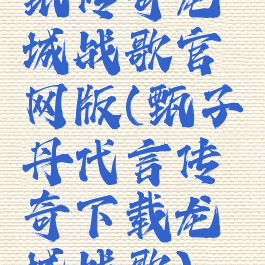 甄传奇龙
城战歌官
网版(甄子
丹代言传
奇下载龙
城战歌)